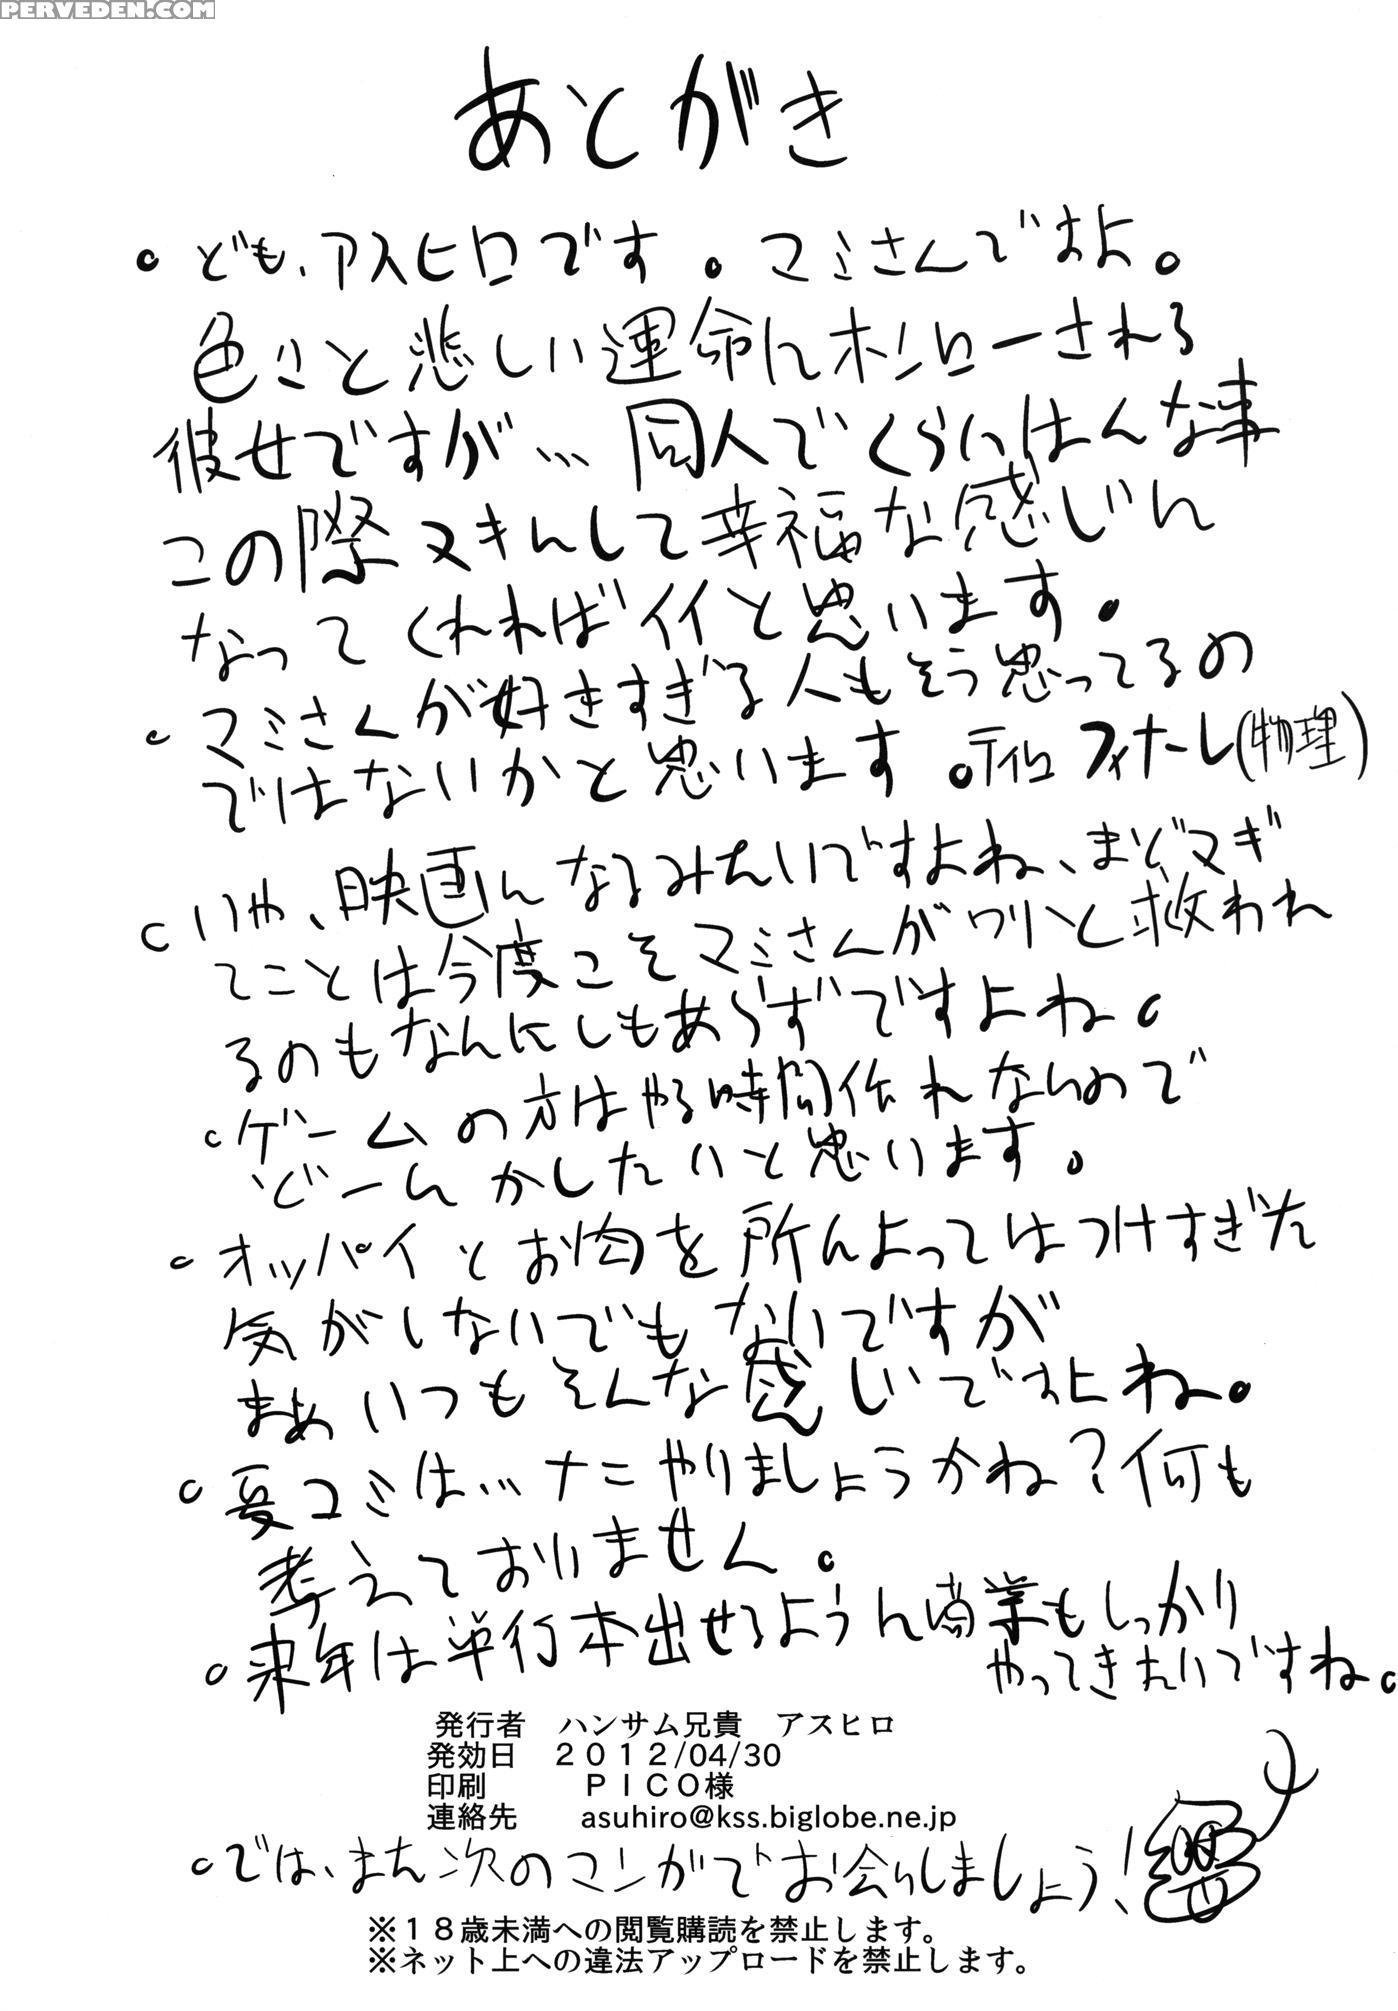 PERVEDEN.COM
あとがき
。ども、アスヒロです。マミさんですよ。
色々と悲しい運命にホンローされる
彼女ですが…同人でくらいはんな事
この際ヌキにして幸福な感じに
なってくれればイイと思います。
。マミさんが好きすぎる人もそう思ってるの
ではないかと思います。ティロ フィナーレ(物理)
。いや、映画になるみたいですよね、まどマギ
てことは今度こそマミさんがワリと救われ
るのもなんにしもあらずですよね。
。ゲームの方はやる時間作れないので
どーにかしたいと思います。
。オッパイとお肉を所によってはつけすぎた
気がしないでもないですが
まぁいつもそんな感じですよね。
。夏コミは…ナニやりましょうかね?何も
考えておりません。
。来年は単行本出せるように商業もしっかり
やってきたいですね。
発行者 ハンサム兄貴 アスヒロ
発効日 2012/04/30
印刷 PICO様
連絡先 asuhiro@kss.biglobe.ne.jp
。では、また次のマンガでお会いしましょう!
※18歳未満への閲覧購読を禁止します。
※ネット上への違法アップロードを禁止します。